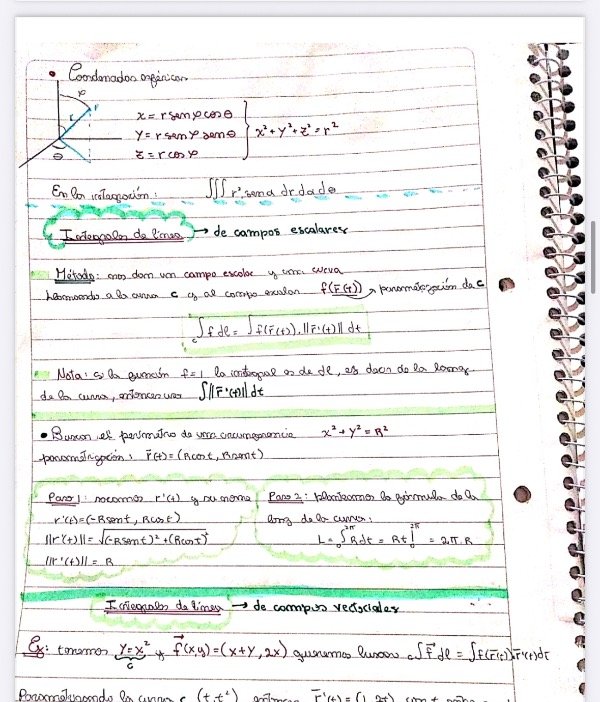 • Coordenadas esféricas
φ
r
P
θ
x = r sen φ cos θ
y = r sen φ sen θ
z = r cos φ
x² + y² + z² = r²
En la integración: ∭ r² sen α dr dα dθ
Integrales de línea → de campos escalares
Método: nos dan un campo escalar y una curva
llamando a la curva c y al campo escalar f(r̄(t)) → parametrización de c
∫c f dl = ∫ f(r̄(t)) . ||r̄'(t)|| dt
Nota: si la función f = 1 la integral es de dl, es decir de la long.
de la curva, entonces ∫||r̄'(t)|| dt
• Buscar el perímetro de una circunferencia x² + y² = R²
parametrización: r̄(t) = (R cos t, R sen t)
Paso 1: sacamos r'(t) y su norma
r'(t) = (-R sen t, R cos t)
||r'(t)|| = √(-R sen t)² + (R cos t)²
||r'(t)|| = R
Paso 2: planteamos la fórmula de la
long de la curva:
L = ∫₀²π R dt = Rt |₀²π = 2.π.R
Integrales de línea → de campos vectoriales
Ej: tenemos y = x² y f⃗(x,y) = (x+y, 2x) queremos buscar c∫ f⃗ dl = ∫ f(r̄(t)) r̄'(t) dt
c
Parametrizando la curva c (t, t²) entonces r̄'(t) = (1, 2t) con t